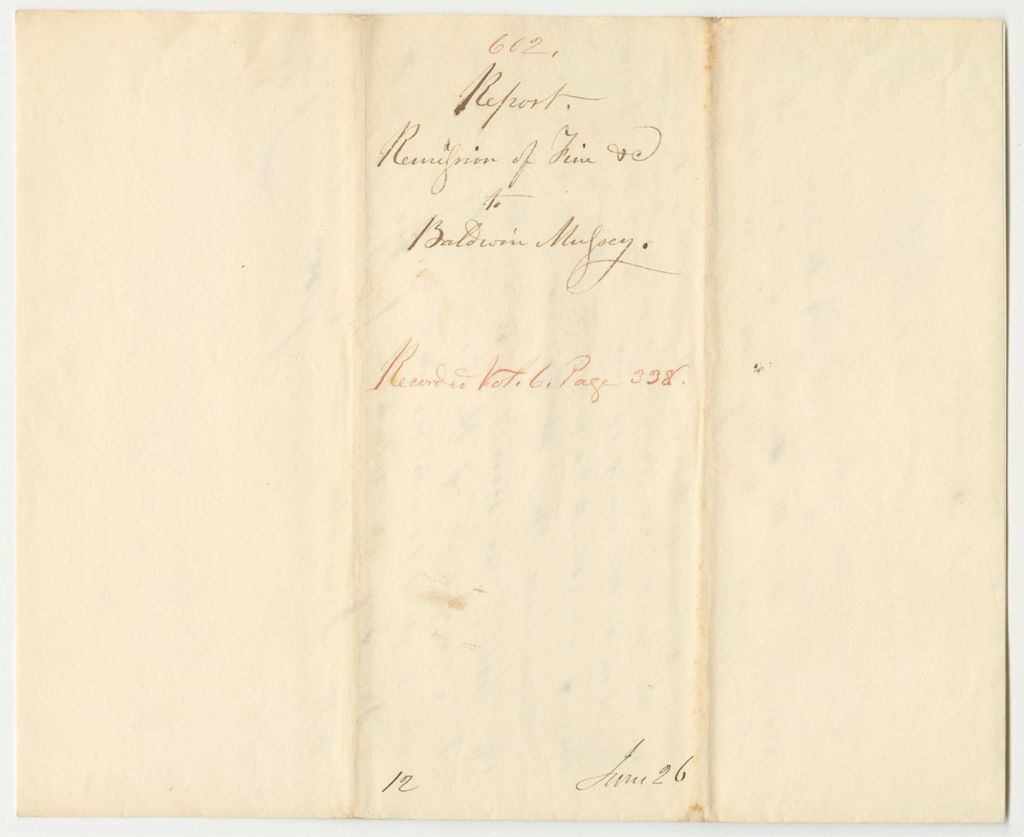 602.
Report.
Remission of Fine &c
to
Baldwin Mussey.
Recorded Vol. 6. Page 338.
12 June 26